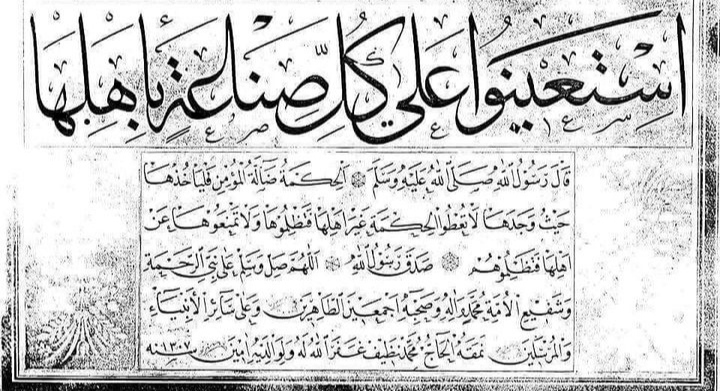 استعينوا على كل صناعة بأهلها
قال رسول الله صلى الله عليه وسلم الحكمة ضالة المؤمن فليأخذها
حيث وجدها لا تعطوا الحكمة غير اهلها فتظلموها ولا تمنعوها عن
اهلها فتظلموهم صدق رسول الله اللهم صل وسلم على نبي الرحمة
وشفيع الأمة محمد وآله وصحبه اجمعين الطاهرين وعلى سائر الأنبياء
والمرسلين نمقه الحاج محمد نظيف غفر الله له ولوالديه آمين ١٣٠٧